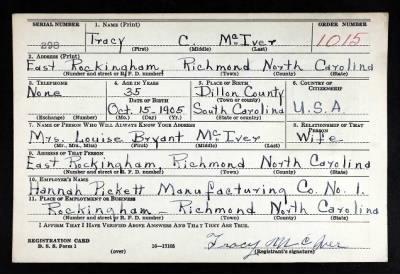 SERIAL NUMBER 1. NAME (Print) ORDER NUMBER
298 Tracy C. McIver 1015
(First) (Middle) (Last)
2. ADDRESS (Print)
East Rockingham, Richmond North Carolina
(Number and street or R. F. D. number) (Town) (County) (State)
3. TELEPHONE 4. AGE IN YEARS 5. PLACE OF BIRTH 6. COUNTRY OF CITIZENSHIP
None 35 Dillon County
DATE OF BIRTH (Town or county)
Oct. 15, 1905 South Carolina U.S.A
(Exchange) (Number) (Mo.) (Day) (Yr.) (State or country)
7. NAME OF PERSON WHO WILL ALWAYS KNOW YOUR ADDRESS 8. RELATIONSHIP OF THAT PERSON
Mrs. Louise Bryant McIver Wife
(Mr., Mrs., Miss) (First) (Middle) (Last)
9. ADDRESS OF THAT PERSON
East Rockingham, Richmond North Carolina
(Number and street or R. F. D. number) (Town) (County) (State)
10. EMPLOYER'S NAME
Hannah Pickett Manufacturing Co. No. 1.
11. PLACE OF EMPLOYMENT OR BUSINESS
Rockingham — Richmond North Carolina
(Number and street or R. F. D. number) (Town) (County) (State)
I AFFIRM THAT I HAVE VERIFIED ABOVE ANSWERS AND THAT THEY ARE TRUE.
REGISTRATION CARD
D. S. S. Form 1 (over) 16—17105 Tracy McIver
(Registrant's signature)